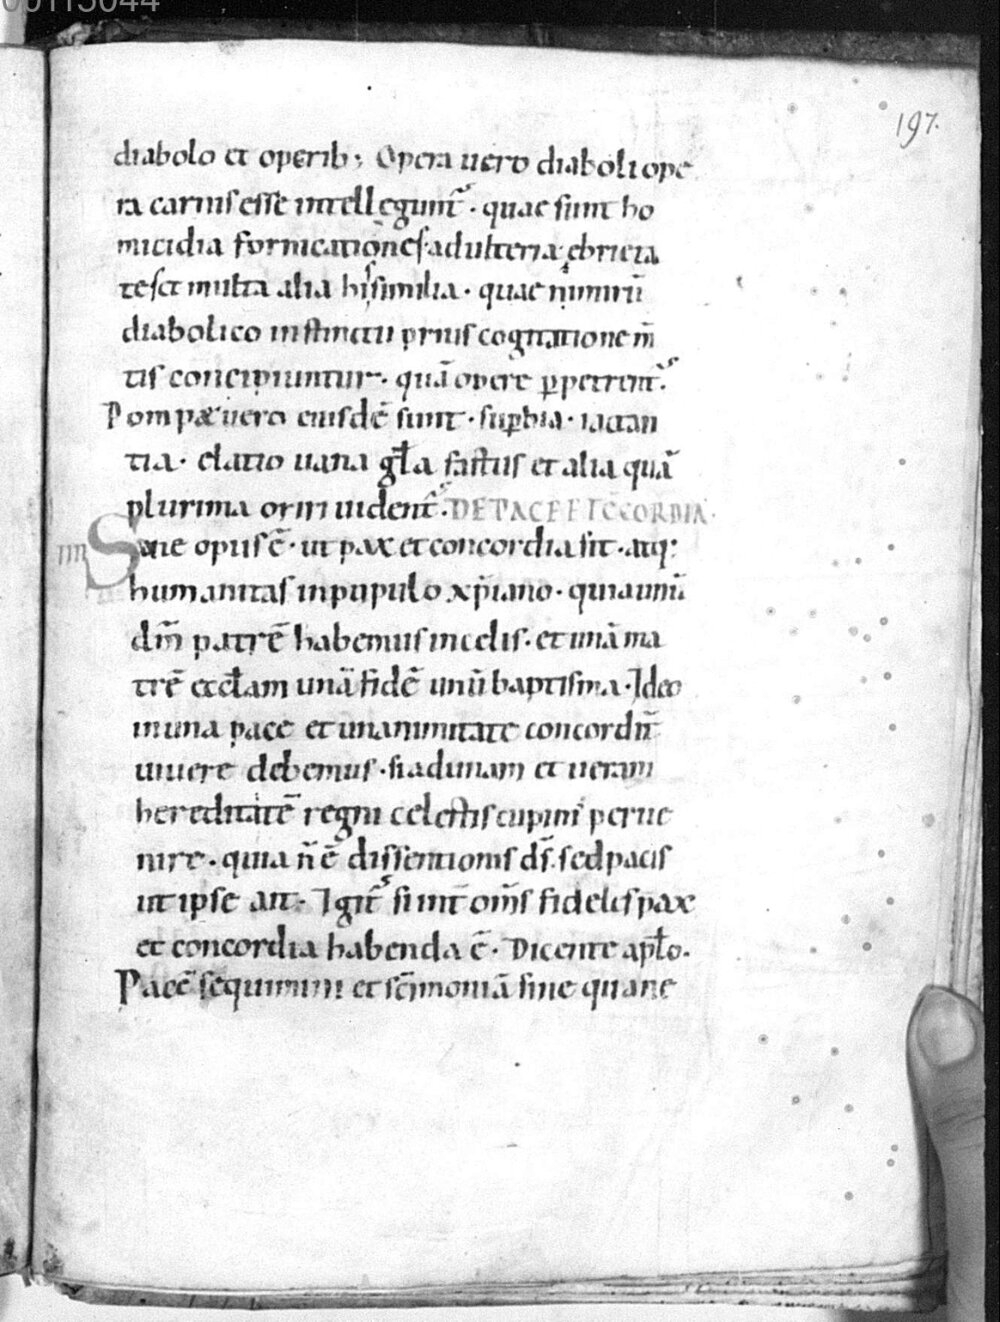 00115044
197.
diabolo et operib; Opera uero diaboli ope
ra carnis esse intelleguntᷣ · quae sunt ho
micidia fornicationes · adulteria ebrieta
tes et multa alia his similia · quae nimirũ
diabolico instinctu prius cogitatione m̃
tis concipiuntur · quã opere ꝑpetrentᷣ.
Pompæ uero eiusdẽ sunt · suꝑbia · iactan
tia · elatio uana gl̃a fastus et alia quã
plurima oriri uidentᷣ. DE PACE ET CC̃CORDIA.
IIII Sane opus ẽ · ut pax et concordia sit · atq:
humanitas in populo xp̃iano · quia unũ
dm̃ patrẽ habemus in celis · et unã ma
trẽ eccl̃am unã fidẽ unũ baptisma · Ideo
in una pace et unanimitate concordit̃
uiuere debemus · si ad unam et ueram
hereditatẽ regni celestis cupimᷤ perue
nire · quia ñ ẽ dissentionis ds̃ · sed pacis
ut ipse ait · Igitᷣ sunt om̃s fideles pax
et concordia habenda ẽ · Dicente apl̃o ·
Pacẽ sequimini et sc̃imoniã sine qua ne